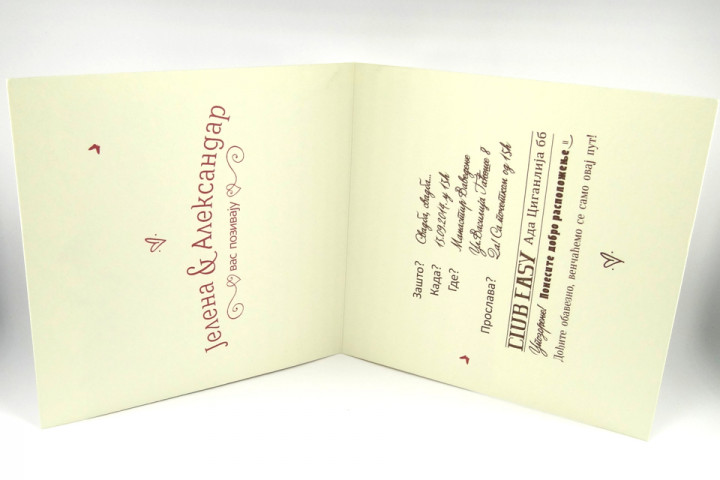 Јелена & Александар
вас позивају
Зашто? Свадба, свадба...
Када? 13.09.2014. у 13h
Где? Манастир Ваведење
Ул. Василија Гаћеше 8
Прослава? Да! Са почетком од 15h
CLUB EASY Ада Циганлија бб
Упозорење! Понесите добро расположење =)
Дођите обавезно, венчаћемо се само овај пут!